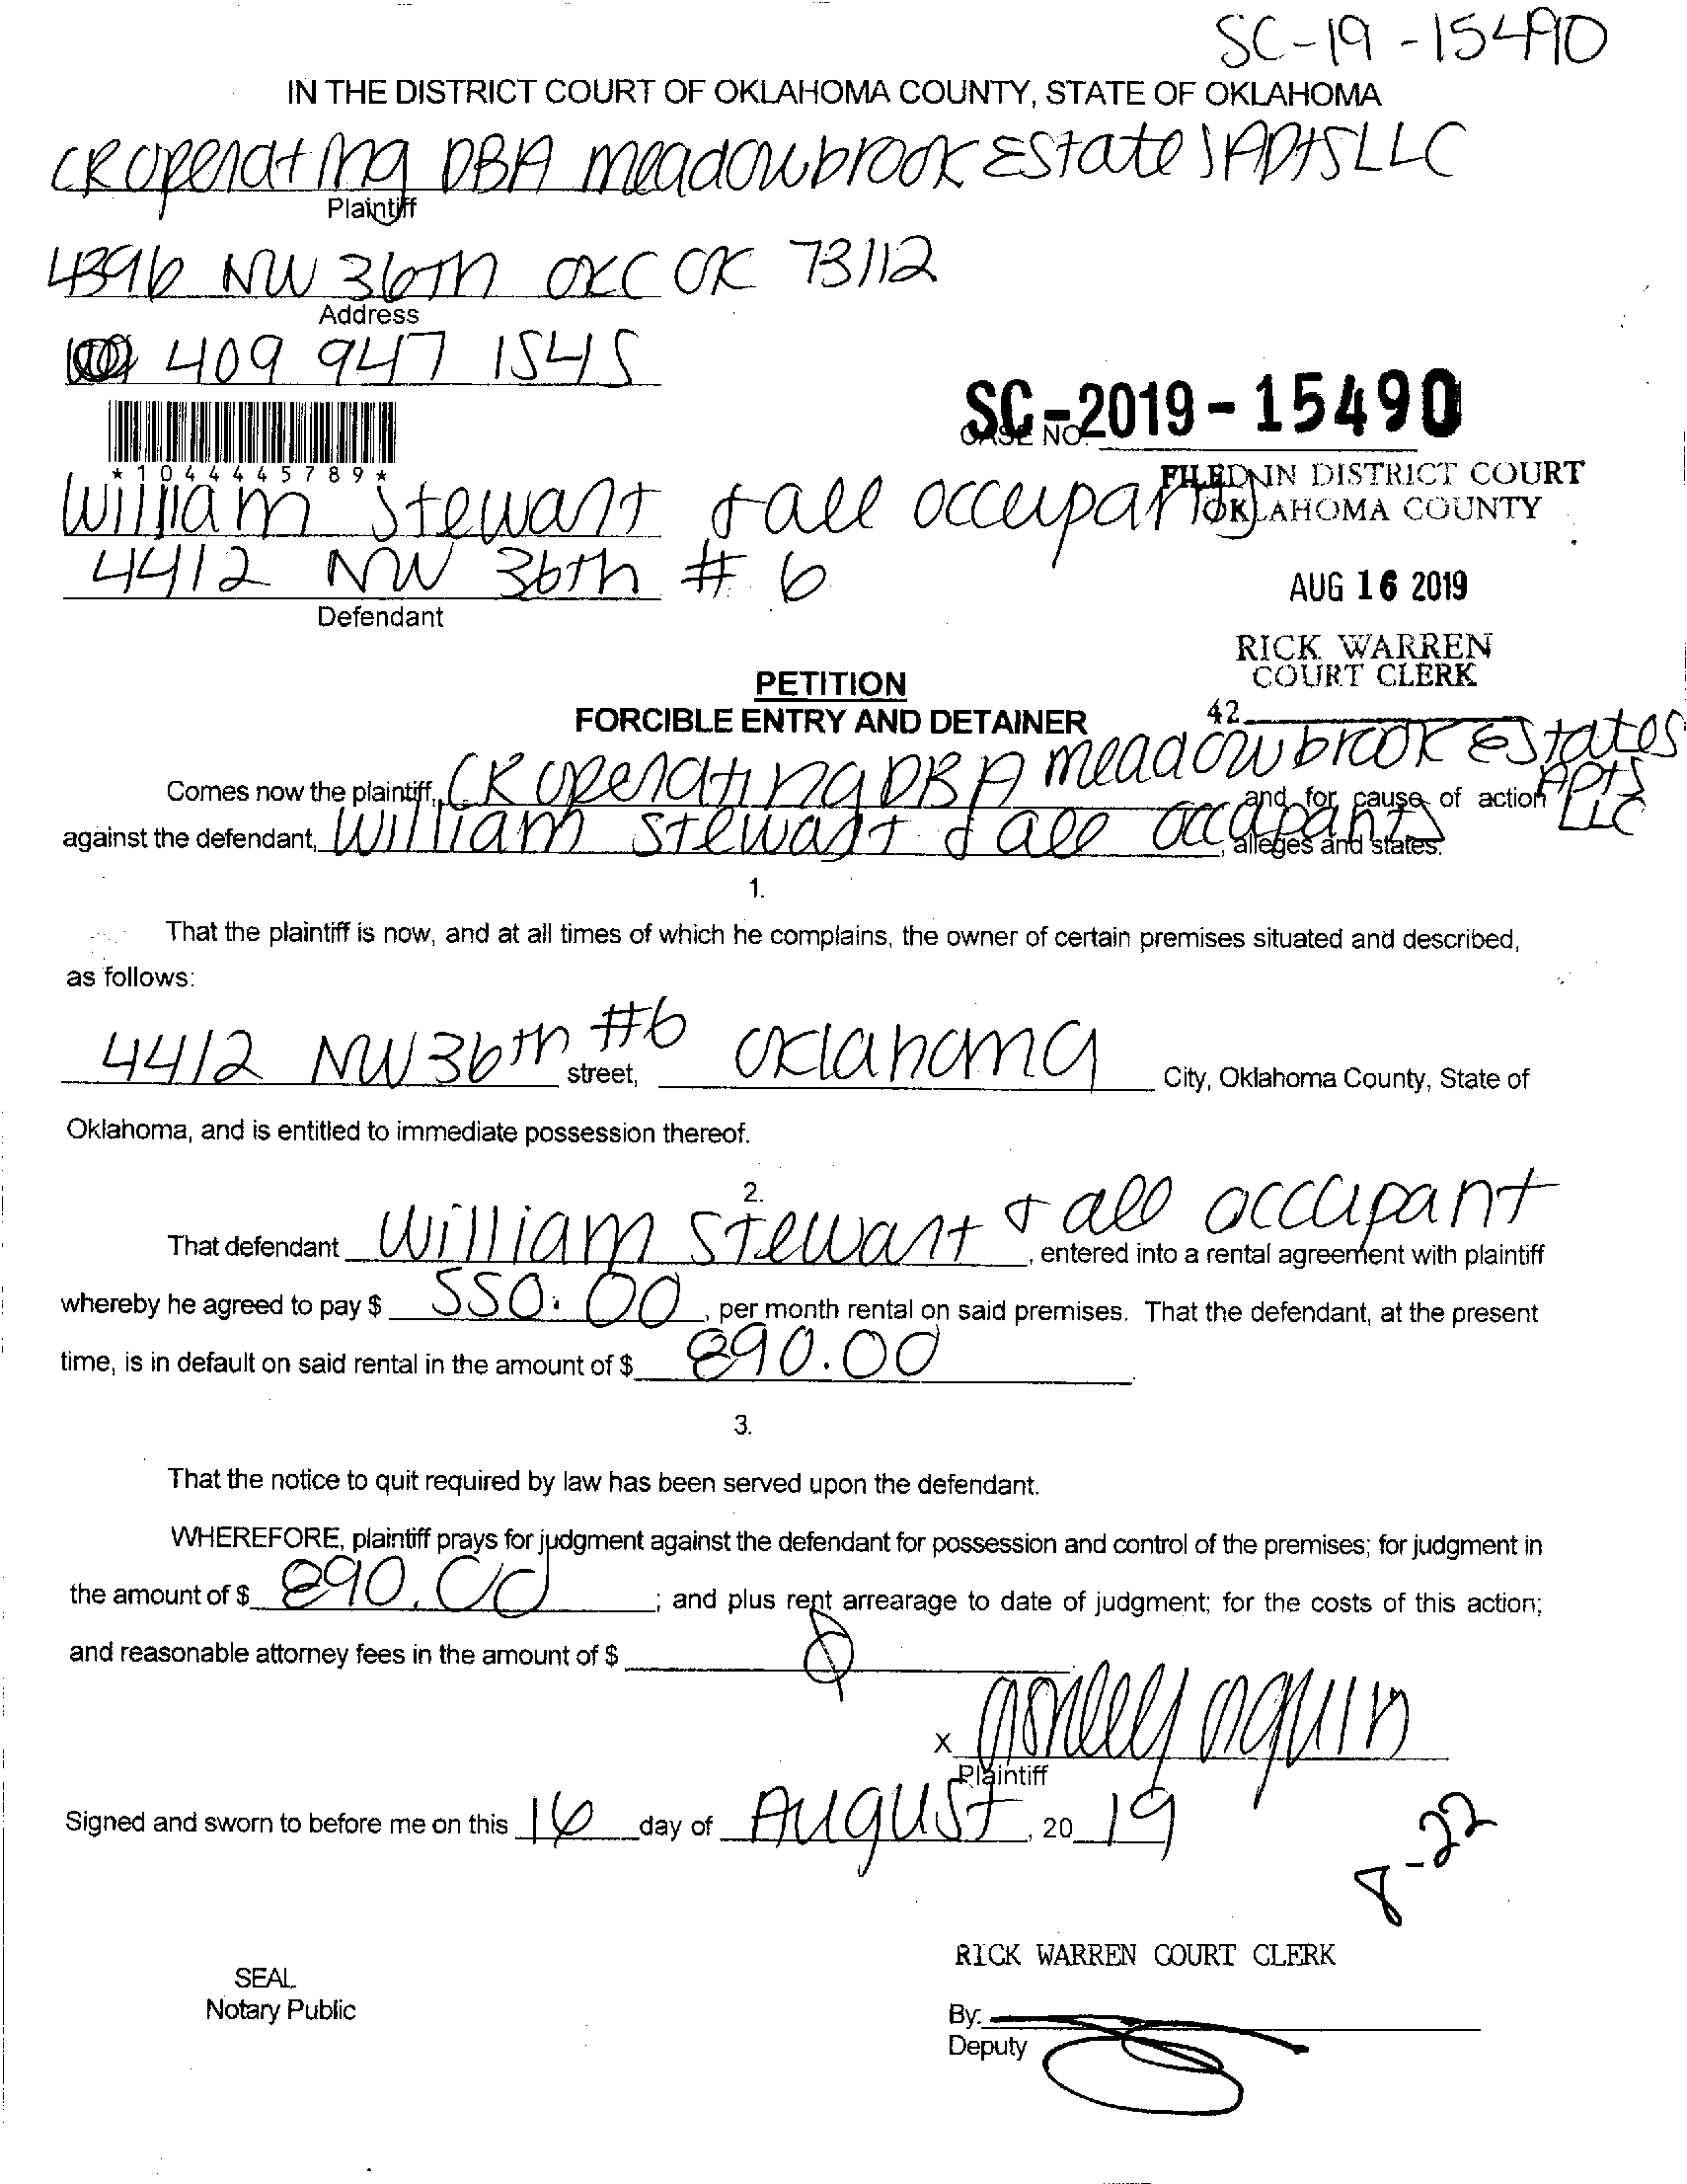 SC-19-15490
IN THE DISTRICT COURT OF OKLAHOMA COUNTY, STATE OF OKLAHOMA
CR Operating DBA Meadowbrook Estates Apts LLC
Plaintiff
4396 NW 36th OKC OK 73112
Address
409 947 1545
SC-2019-15490
CASE NO.
*1044445789*
FILED IN DISTRICT COURT
William Stewart & all occupants
OKLAHOMA COUNTY
4412 NW 36th # 6
AUG 16 2019
Defendant
RICK WARREN
COURT CLERK
PETITION
42
FORCIBLE ENTRY AND DETAINER
Comes now the plaintiff, CR Operating DBA Meadowbrook Estates Apts LLC and for cause of action
against the defendant, William Stewart & all occupants, alleges and states:
1.
That the plaintiff is now, and at all times of which he complains, the owner of certain premises situated and described,
as follows:
4412 NW 36th #6 street, Oklahoma City, Oklahoma County, State of
Oklahoma, and is entitled to immediate possession thereof.
2.
That defendant William Stewart & all occupant, entered into a rental agreement with plaintiff
whereby he agreed to pay $ 550.00, per month rental on said premises. That the defendant, at the present
time, is in default on said rental in the amount of $ 890.00.
3.
That the notice to quit required by law has been served upon the defendant.
WHEREFORE, plaintiff prays for judgment against the defendant for possession and control of the premises; for judgment in
the amount of $ 890.00; and plus rent arrearage to date of judgment; for the costs of this action;
and reasonable attorney fees in the amount of $ Ø
x
Plaintiff
Signed and sworn to before me on this 16 day of August, 20 19
8-22
RICK WARREN COURT CLERK
SEAL
Notary Public
By:
Deputy